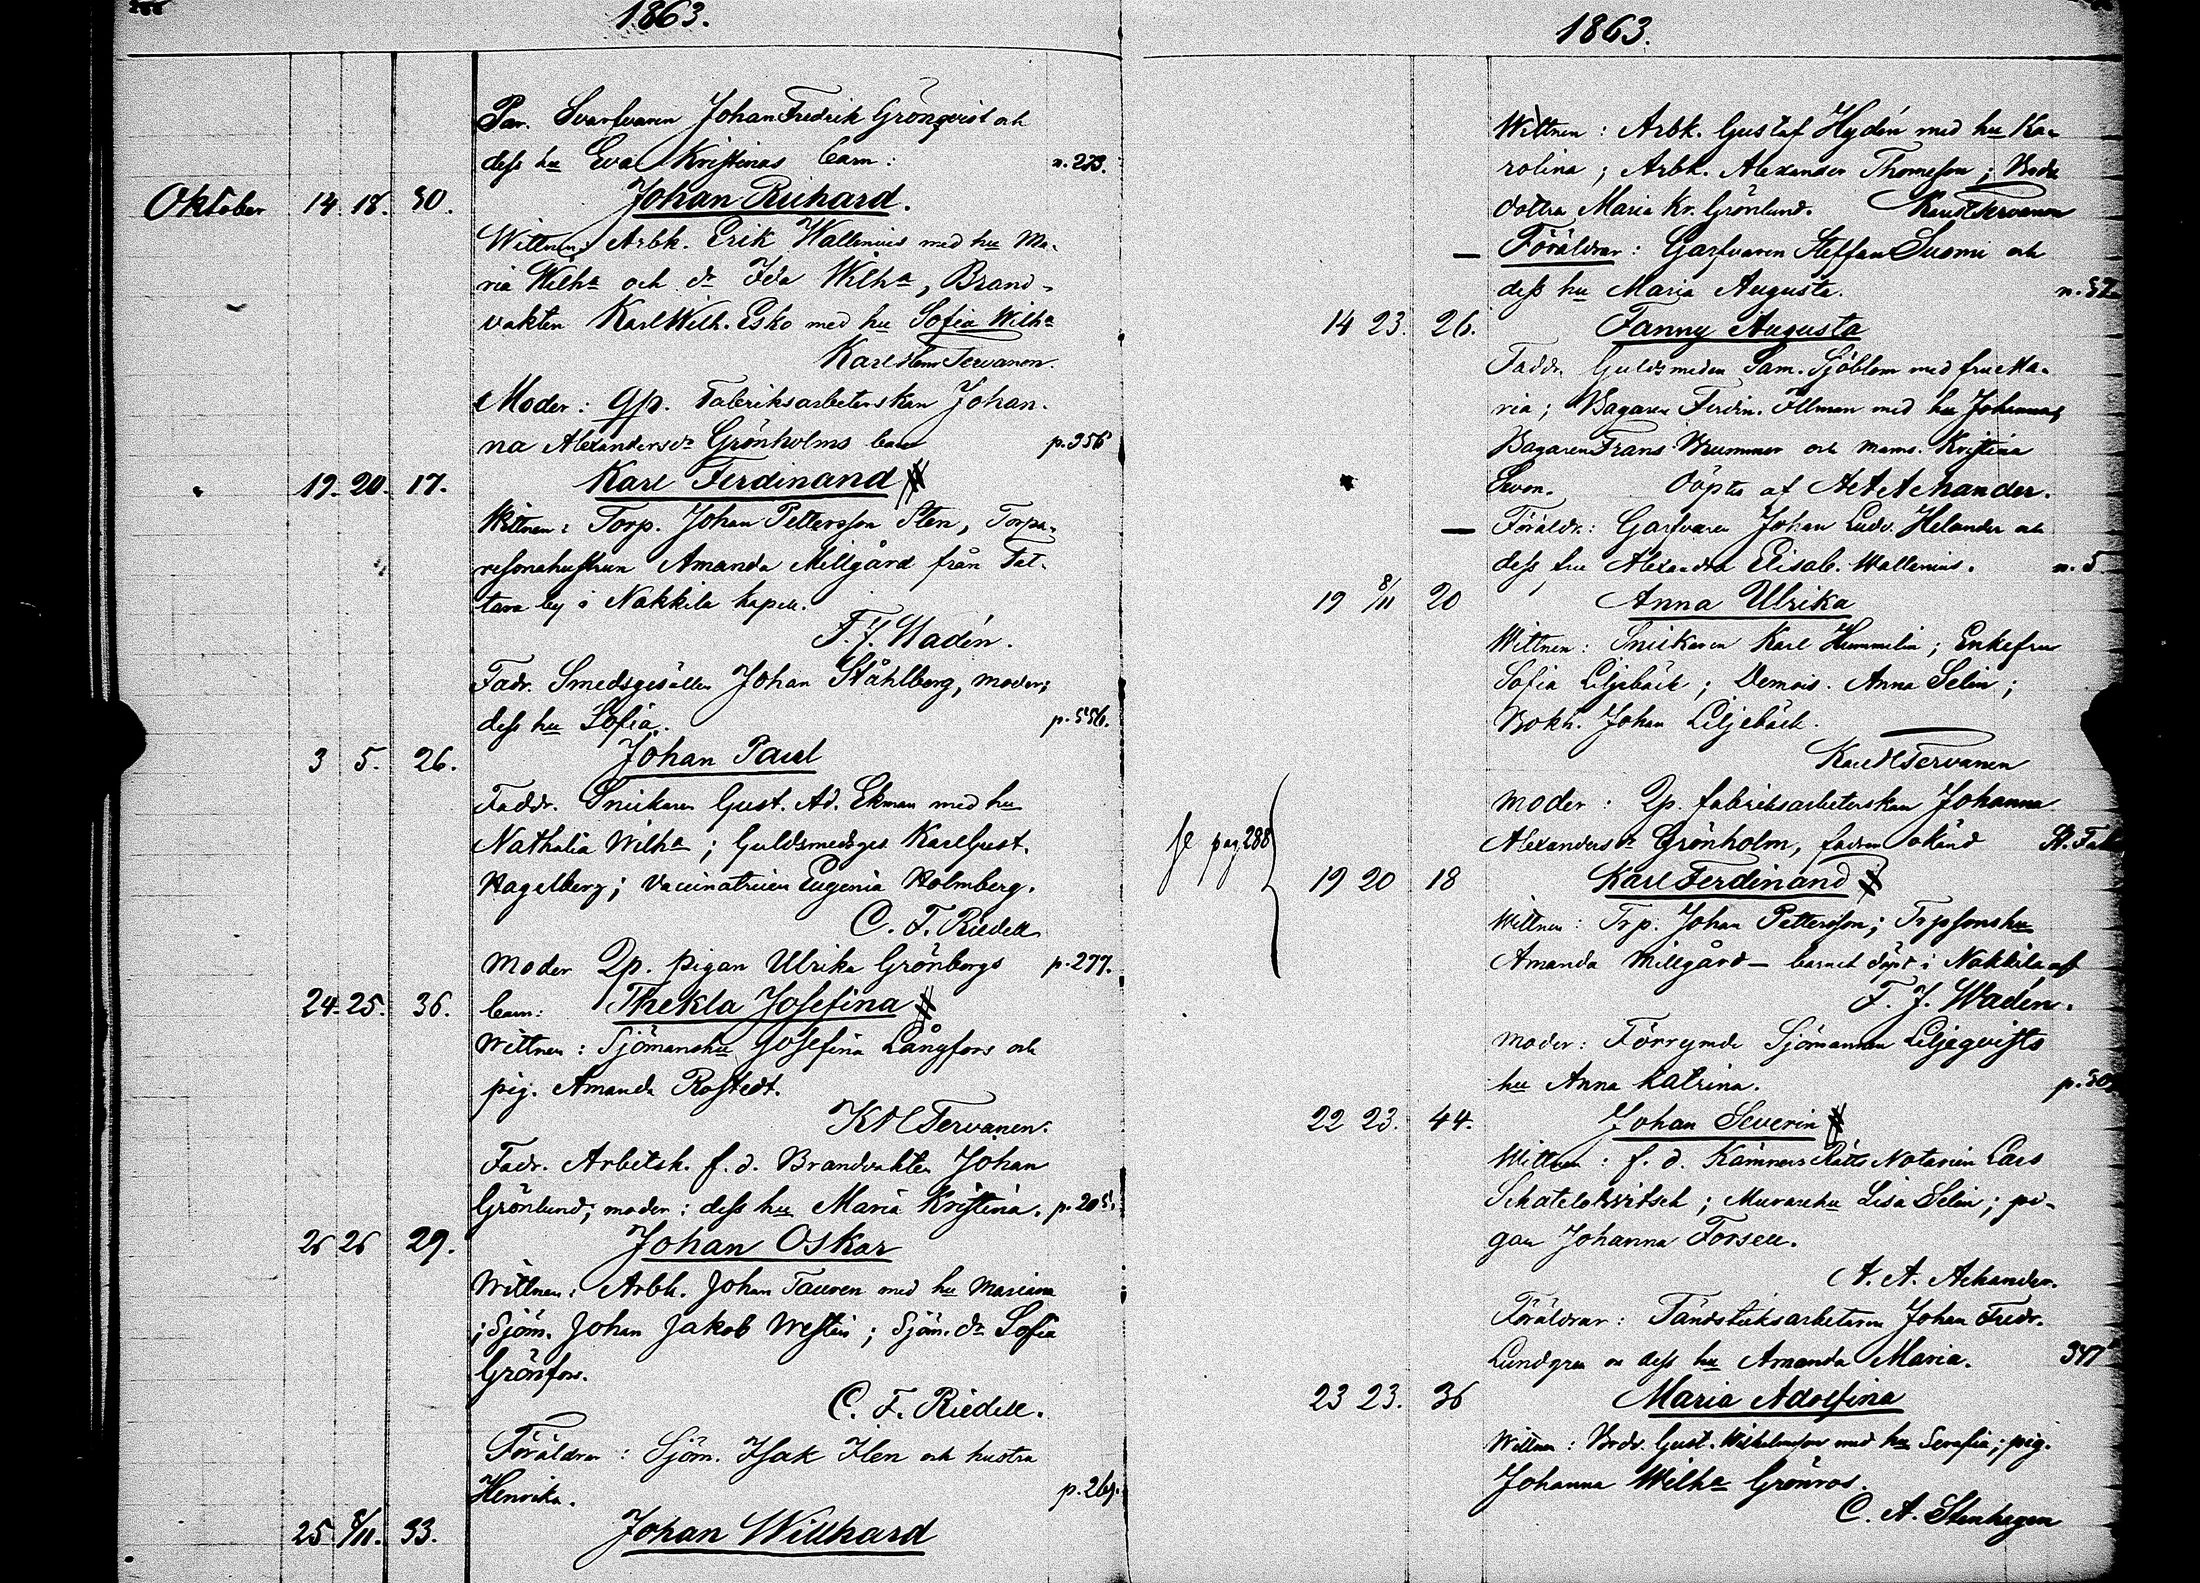 1863.
Par. Svarfvaren Johan Fredrik Grönqvist och
dess hu Eva Kristinas barn: n. 273.
Oktober 14. 18. 30. Johan Richard.
Wittnen: Arbk. Erik Wallenius med hu Ma-
ria Wilha och dr Ida Wilha, Brand-
vakten Karl Wilh. Esko med hu Sofia Wilha
Karl Hem Tervanen.
Moder: gp. Fabriksarbeterskan Johan-
na Alexandersdr Grönholms barn p. 356
19. 20. 17. Karl Ferdinand #
Wittnen: Torp. Johan Pettersson Sten, Torpa-
resonahustrun Amanda Millgård från Tat-
tara by i Nakkila kapell.
F. J. Wadén.
Fadr. Smedsgesällen Johan Ståhlberg, moder;
dess hu Sofia. p. 556.
3 5. 26. Johan Paul
Faddr. Snickaren Gust. Ad. Ekman med hu
Nathalia Wilha; Guldsmedsges Karl Gust.
Hagelberg; Vaccinatricen Eugenia Holmberg.
C. F. Riedell
Moder Qp. pigan Ulrika Grönbergs p. 277.
24. 25. 36. barn: Thekla Josefina #
Wittnen: Sjömanshu Josefina Långfors och
pig. Amanda Rostedt.
K H Tervanen.
Fadr. Arbetsk. f. d. Brandvakten Johan
Grönlund; moder: dess hu Maria Kristina. p. 205.
26 26 29. Johan Oskar
Wittnen: Arbk. Johan Tauren med hu Mariana
; Sjöm. Johan Jakob Westin; Sjöm. dr Sofia
Grönfors.
C. F. Riedell.
Föräldrar: Sjöm. Isak Ilen och hustru
Henrika. p. 269.
25 8/11. 33. Johan Willhard
1863.
Wittnen: Arbk. Gustaf Hydén med hu Ka-
rolina; Arbk. Alexander Thomesson; Bonde
dottra Maria Kr. Grönlund. Tervanen
Föräldrar: Garfvaren Steffan Suomi och
dess hu Maria Augusta. n. 52
14 23. 26. Fanny Augusta
Faddr. Guldsmeden Sam. Sjöblom med fru Ma-
ria; Bagaren Ferdin. Illman med hu Johanna;
Bagaren Frans Brummer och mams. Kristina
Döptes af A A Achander.
Föräldr.: Garfvaren Johan Ludv. Helander och
dess fru Alexandra Elisab. Wallenius. n. 5
19 8/11 20 Anna Ulrika
Wittnen: Snickaren Karl Hummelin; Enkefru
Sofia Liljebäck; Demois. Anna Selin;
Bokh. Johan Liljebäck.
Karl H Tervanen
Moder: Qp. fabriksarbeterskan Johanna
Alexandersdr Grönholm, fadren okänd
se pag. 288 19 20 18 Karl Ferdinand #
Wittnen: Trp. Johan Pettersson; Trpsonshu
Amanda Millgård – barnet döpt i Nakkila af
F. J. Wadén.
Moder: Förrymde Sjömannen Liljeqvists
hu Anna Katrina.
22 23. 44. Johan Severin #
Wittnen: f. d. Kämners Rätts Notarien Lars
Schatelowitsch; Murarehu Lisa Selin; pi-
gan Johanna Forsell.
A. A. Achander.
Föräldrar: Tändsticksarbetaren Johan Fredr.
Lundgren o dess hu Amanda Maria. 347
23 23. 36 Maria Adolfina
Wittnen: Gust. Wilhelmsson med hu Serafia; pig.
Johanna Wilha Grönros.
C. A. Stenhagen